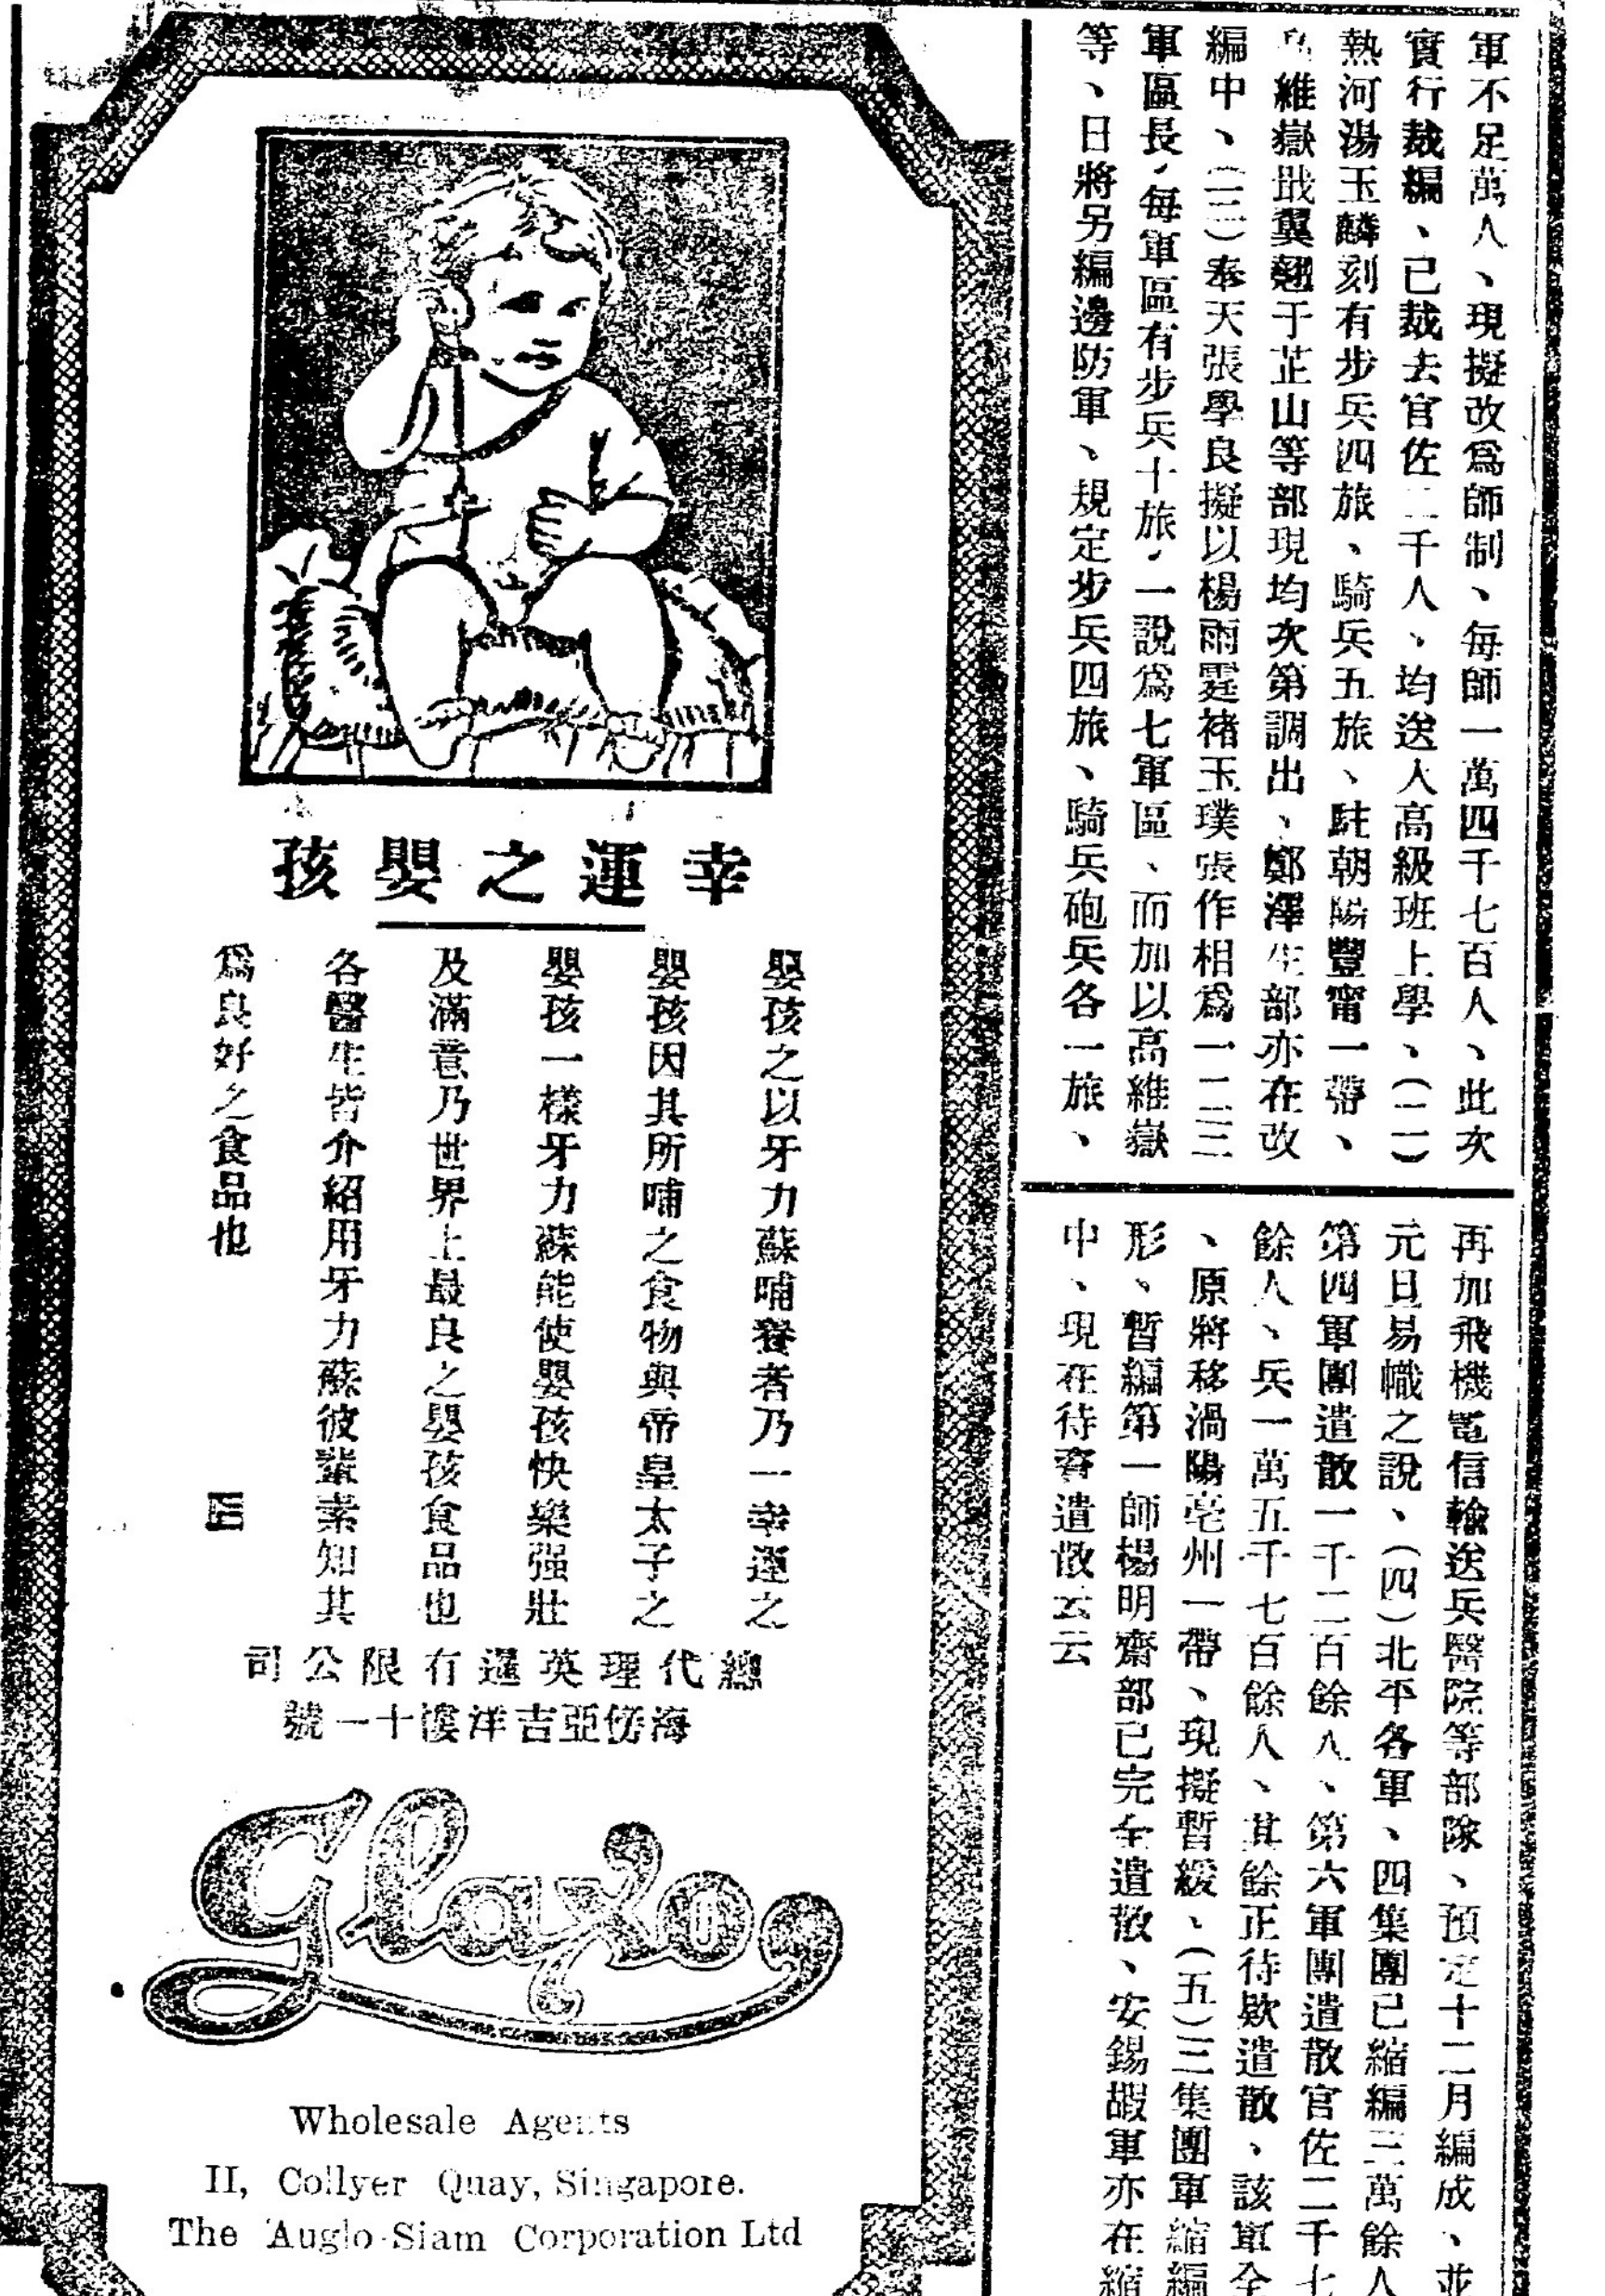 軍不足萬人、現擬改爲師制、每師一萬四千七百人、此次
實行裁編、已裁去官佐二千人、均送入高級班上學、(二)
熱河湯玉麟刻有步兵四旅、騎兵五旅、駐朝陽豐甯一帶、
維嶽戢翼翹于芷山等部現均次第調出、鄭澤生部亦在改
編中、(三)奉天張學良擬以楊雨霆褚玉璞張作相爲一二三
軍區長、每軍區有步兵十旅、一說爲七軍區、而加以高維嶽
等、日將另編邊防軍、規定步兵四旅、騎兵砲兵各一旅、
再加飛機電信輸送兵醫院等部隊、預定十二月編成、並
元旦易幟之說、(四)北平各軍、四集團已縮編三萬餘人
第四軍團遣散一千二百餘人、第六軍團遣散官佐二千七
餘人、兵一萬五千七百餘人、其餘正待欵遣散、該軍全
、原將移渦陽亳州一帶、現擬暫緩、(五)三集團軍縮編
形、暫編第一師楊明齋部已完全遣散、安錫嘏軍亦在縮
中、現在待齊遣散云云
孩嬰之運幸
嬰孩之以牙力蘇哺養者乃一幸運之
嬰孩因其所哺之食物與帝皇太子之
嬰孩一樣牙力蘇能使嬰孩快樂强壯
及滿意乃世界上最良之嬰孩食品也
各醫生皆介紹用牙力蘇彼輩素知其
爲良好之食品也
司公限有暹英理代總
號一十樓洋吉亞傍海
Glaxo
Wholesale Agents
II, Collyer Quay, Singapore.
The Auglo-Siam Corporation Ltd